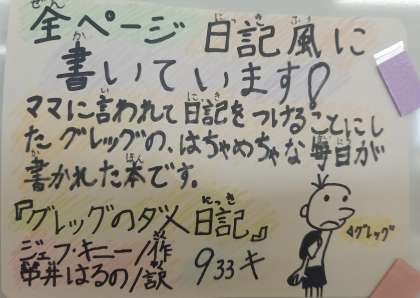 全ページ 日記風に
書いています!
ママに言われて日記をつけることにし
た グレッグの、はちゃめちゃな毎日が
書かれた本です。
『グレッグのダメ日記』
ジェフ・キニー/作
中井はるの/訳 933キ
グレッグ